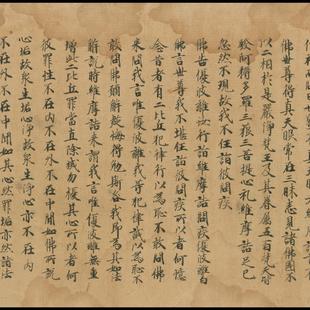 佛世尊得真天眼常在三昧悉見諸佛國不
以二相於是嚴淨梵王及其眷屬五百梵天皆
發阿耨多羅三藐三菩提心礼維摩詰足已
忽然不現故我不任詣彼問疾
佛告優波離汝行詣維摩詰問疾優波離白
佛言世尊我不堪任詣彼問疾所以者何憶
念昔者有二比丘犯律行以為恥不敢問佛
來問我言唯優波離我等犯律誠以為恥不
敢問佛願解疑悔得勉斯咎我即為其如法
解說時維摩詰來謂我言唯優波離無重
增此二比丘罪當直除滅勿擾其心所以者何
彼罪性不在內不在外不在中間如佛所說
心垢故衆生垢心淨故衆生淨心亦不在內
不在外不在中間如其心然罪垢亦然諸法